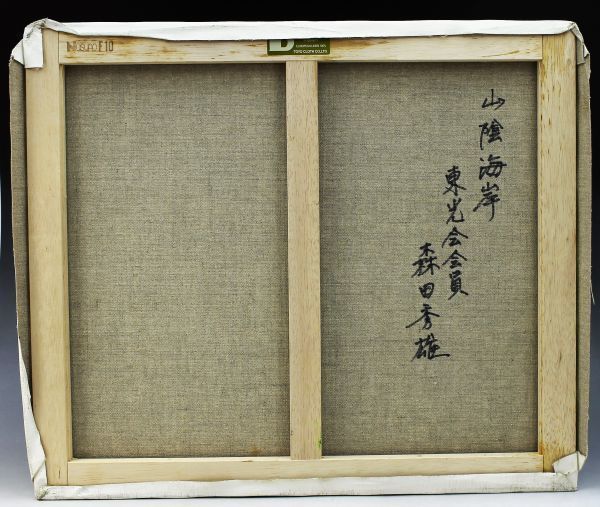 F10
TOYO CLOTH CO.,LTD.
山陰海岸
東光会会員
森田秀雄